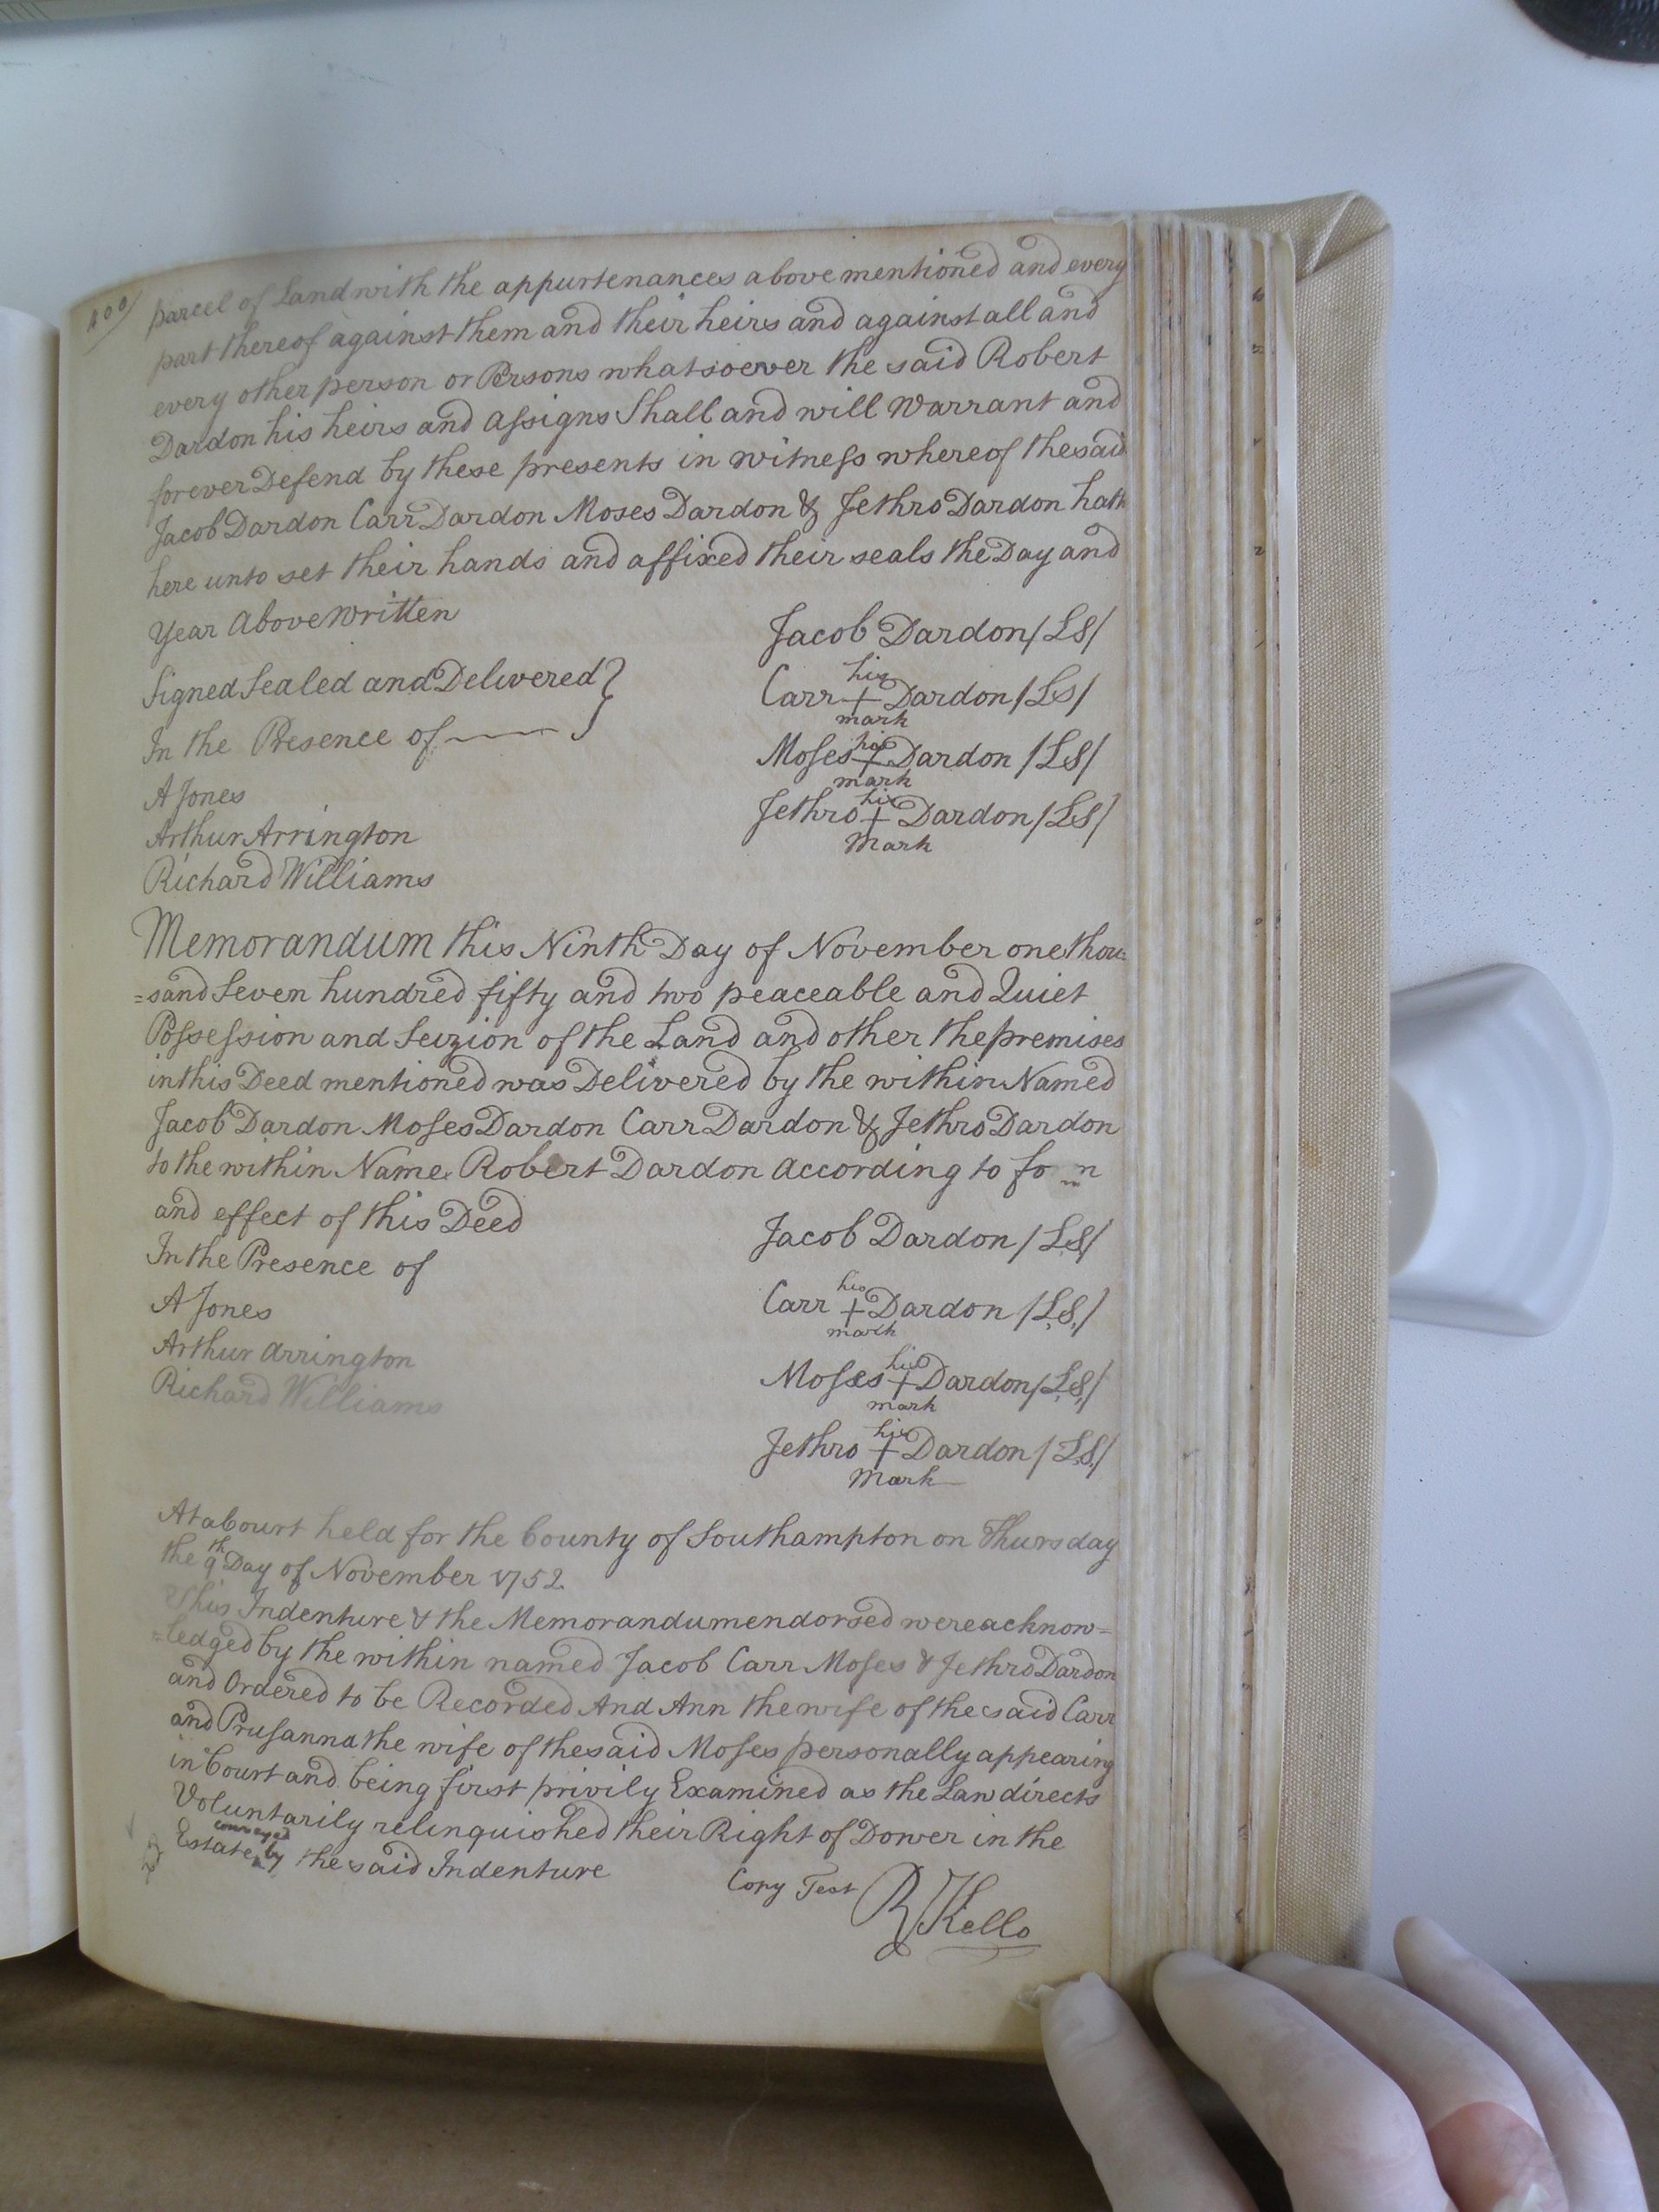 400/
parcel of Land with the appurtenances above mentioned and every
part thereof against them and their heirs and against all and
every other person or Persons whatsoever the said Robert
Dardon his heirs and assigns Shall and will Warrant and
forever Defend by these presents in witness whereof the said
Jacob Dardon Carr Dardon Moses Dardon & Jethro Dardon hath
here unto set their hands and affixed their seals the Day and
Year Above Written
Jacob Dardon /LS/
Signed Sealed and Delivered }
his
Carr + Dardon /LS/
mark
In the Presence of
his
Moses + Dardon /LS/
mark
A Jones
his
Jethro + Dardon /LS/
Mark
Arthur Arrington
Richard Williams
Memorandum this Ninth Day of November one thou=
=sand Seven hundred fifty and two peaceable and Quiet
Possession and Seizion of the Land and other the premises
in this Deed mentioned was Delivered by the within Named
Jacob Dardon Moses Dardon Carr Dardon & Jethro Dardon
to the within Name Robert Dardon according to
and effect of this Deed
Jacob Dardon /LS/
In the Presence of
A Jones
his
Carr + Dardon /L.S./
mark
Arthur arrington
Richard Williams
his
Moses + Dardon /L.S./
mark
his
Jethro + Dardon /L.S./
Mark
At a Court held for the County of Southampton on Thursday
the 9th Day of November 1752
This Indenture & the Memorandum endorsed were acknow=
=ledged by the within named Jacob Carr Moses & Jethro Dardon
and Ordered to be Recorded And Ann the wife of the said Carr
and Prusanna the wife of the said Moses personally appearing
in Court and being first privily Examined as the Law directs
Voluntarily relinquished their Right of Dower in the
Estate conveyed by the said Indenture
Copy Test
R Kello